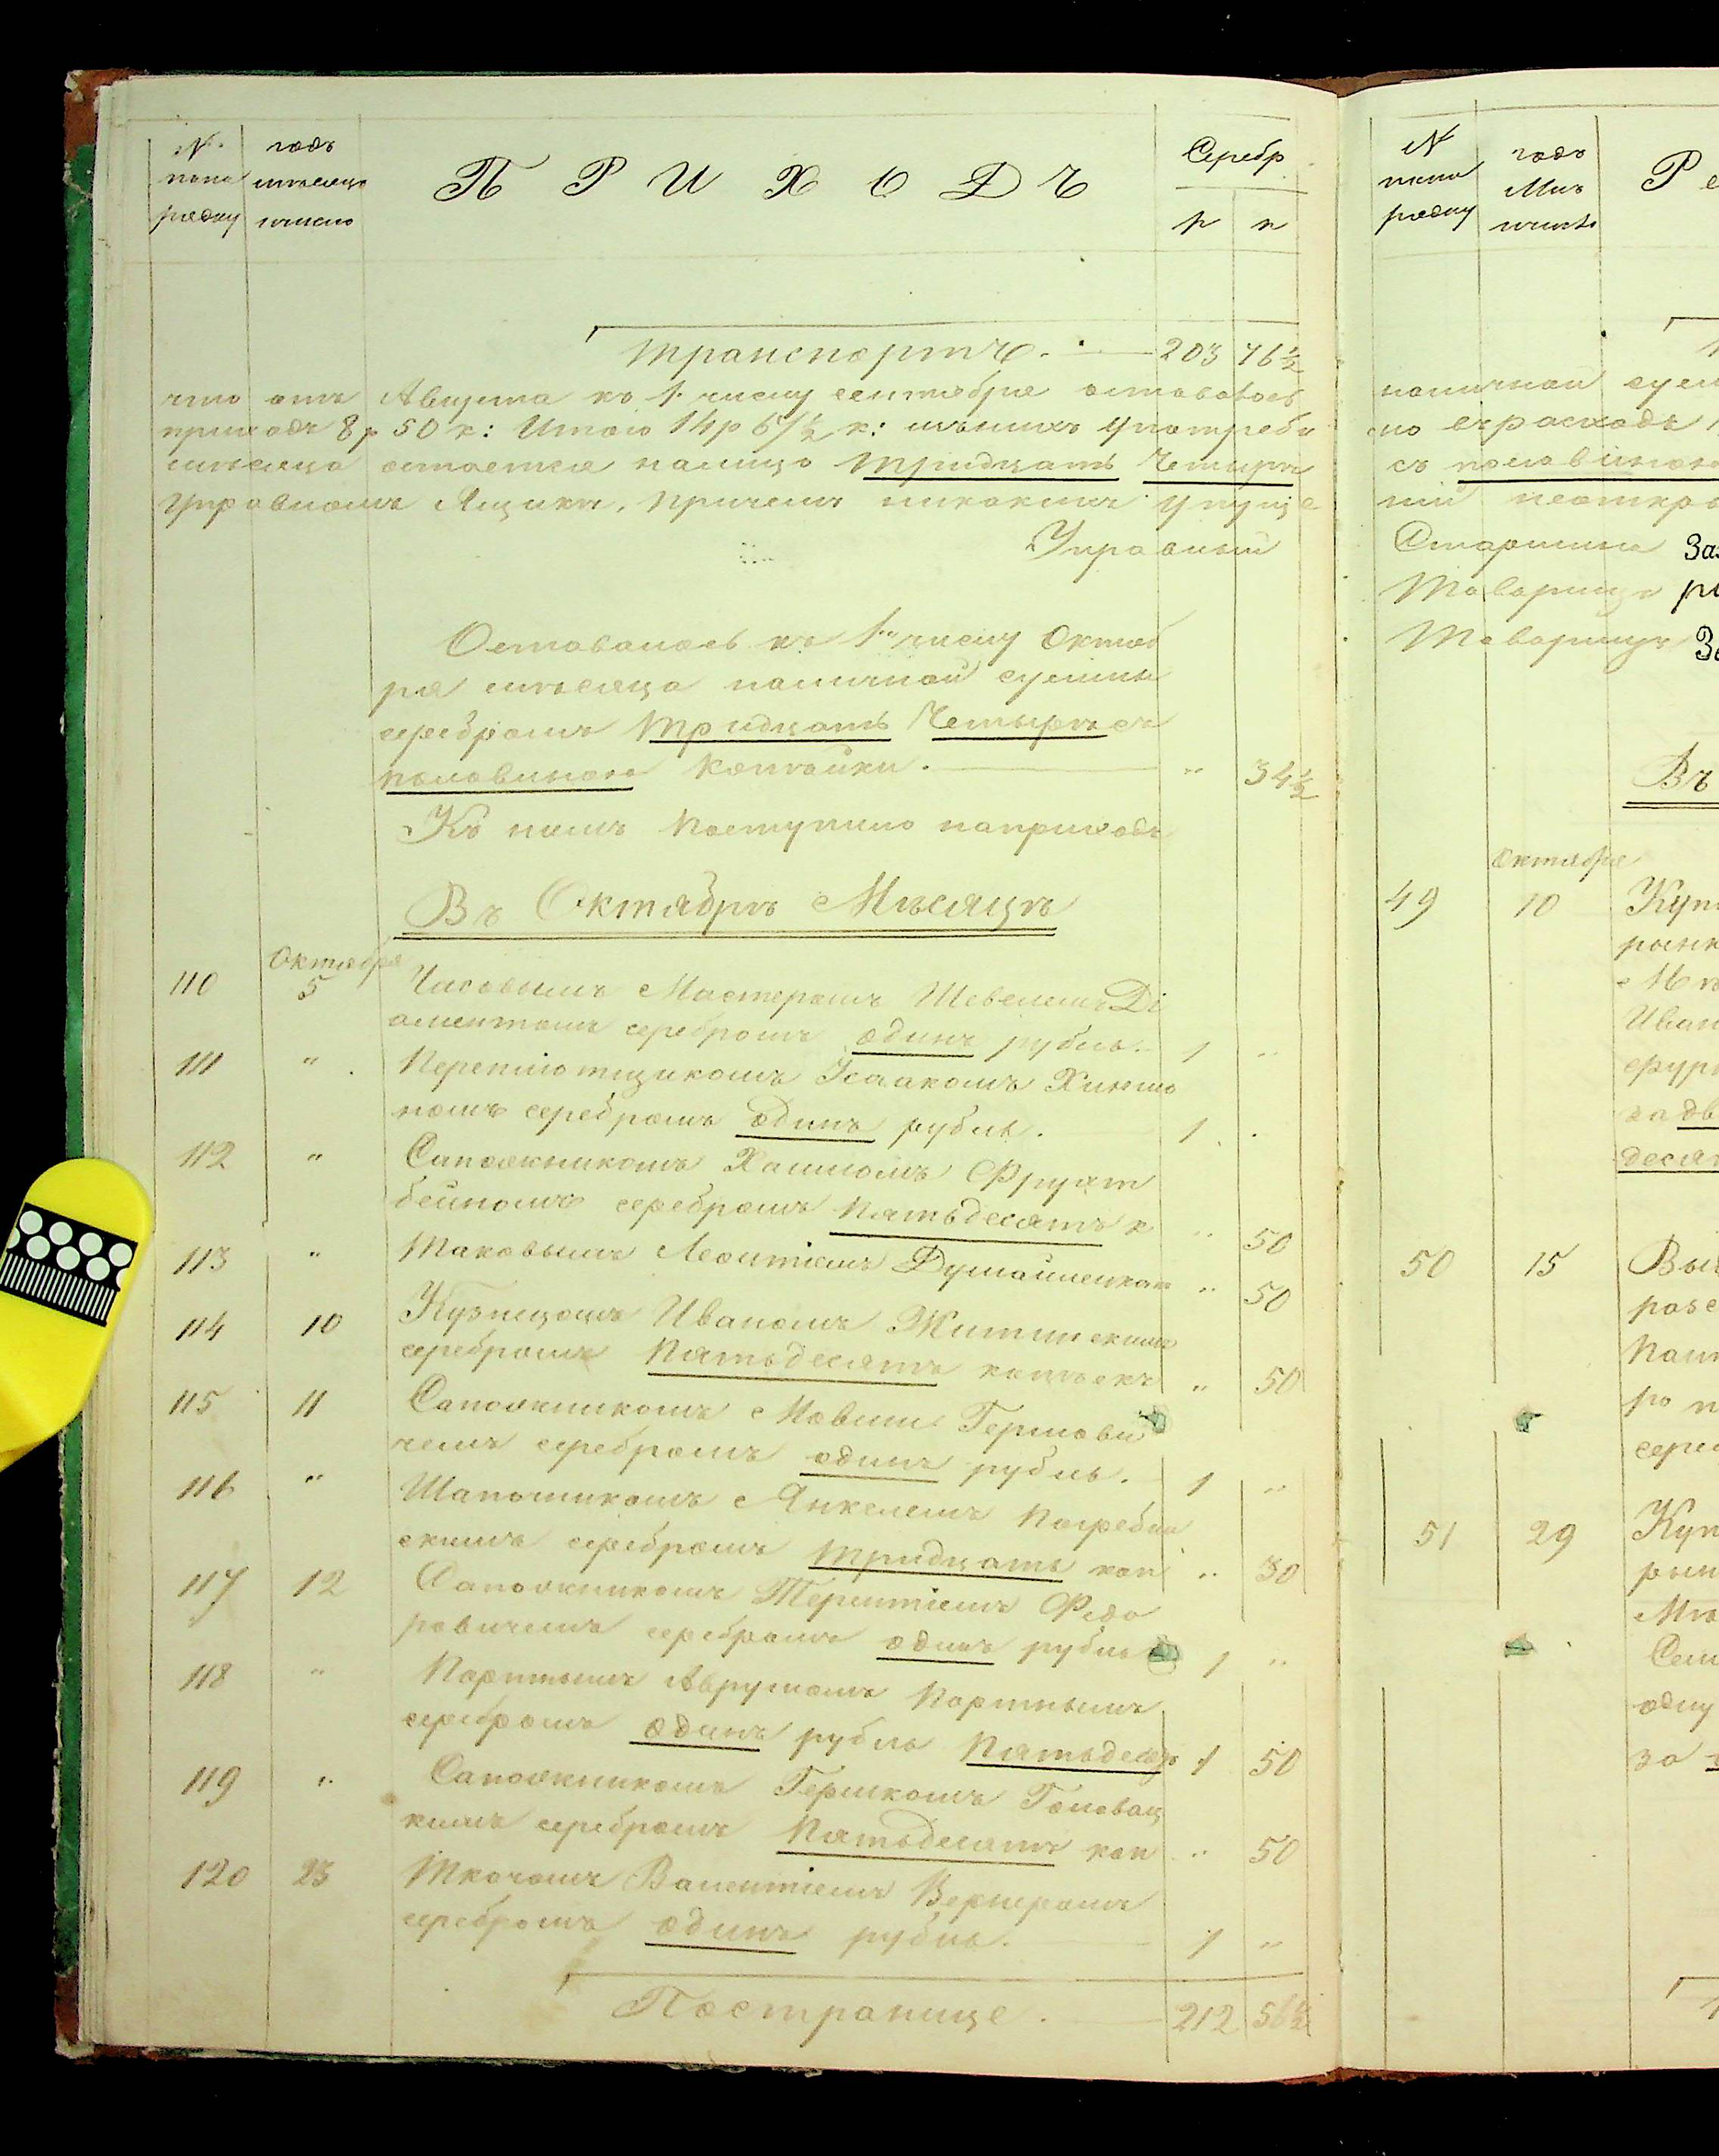 № попо рядку
годъ мѣсяцъ ичисло
ПРИХОДЪ
Серебр
р к
Транспортъ. 203 76½
что отъ Августа къ 1. числу сентября оставалось
приходъ 8 р 50 к: Итого 14 р 67½ к:
мѣсяца остается налицо тридцать Четыре
Управномъ Ящикѣ, причемъ никакихъ упуще
Управный
Оставалось къ 1му числу Октяб
ря мѣсяца наличной суммы
серебромъ тридцать Четыре съ
половиною Копѣйки. " 34½
Къ нимъ Поступило наприходъ
Въ Октябрѣ Мѣсяцѣ
Октября
110 5 Часовымъ Мастеромъ Шевелемъ Ді
аментомъ серебромъ одинъ рубль. 1 "
111 " Переплотщикомъ Исаакомъ
номъ серебромъ одинъ рубль. 1
112 " Сапожникомъ Хаимомъ Фрухт
бейномъ серебромъ Пятьдесятъ к " 50
113 " Таковымъ Леонтіемъ " 50
114 10 Кузнецомъ Иваномъ Житинскимъ
серебромъ Пятьдесятъ копѣекъ " 50
115 11 Сапожникомъ Мовши Гершови
чемъ серебромъ одинъ рубль. 1 "
116 " Шапошникомъ Янкелемъ Погребин
скимъ серебромъ тридцать коп " 30
117 12 Сапожникомъ Терентіемъ Федо
ровичемъ серебромъ одинъ рубль 1 "
118 " Портнымъ Аврумомъ Портнымъ
серебромъ одинъ рубль Пятьдеся 1 50
119 " Сапожникомъ Гершкомъ Головац
кимъ серебромъ Пятьдесятъ коп " 50
120 23 Ткачомъ Валентіемъ Вернеромъ
серебромъ одинъ рубль. 1 "
Постранице. 212 56½
№ попо рядку
годъ Мѣс ичисло
Р
наличной сум
по ёърасходъ
съ половиною
ній неоткры
Старшина За
Товарищъ
Товарищъ За
Въ
Октября
49 10 Куп
рынк
Мѣ
Иван
фурм
задв
десят
50 15 Вы
Паш
ро п
сереб
51 29 Куп
рын
Мѣ
Сем
одну
за